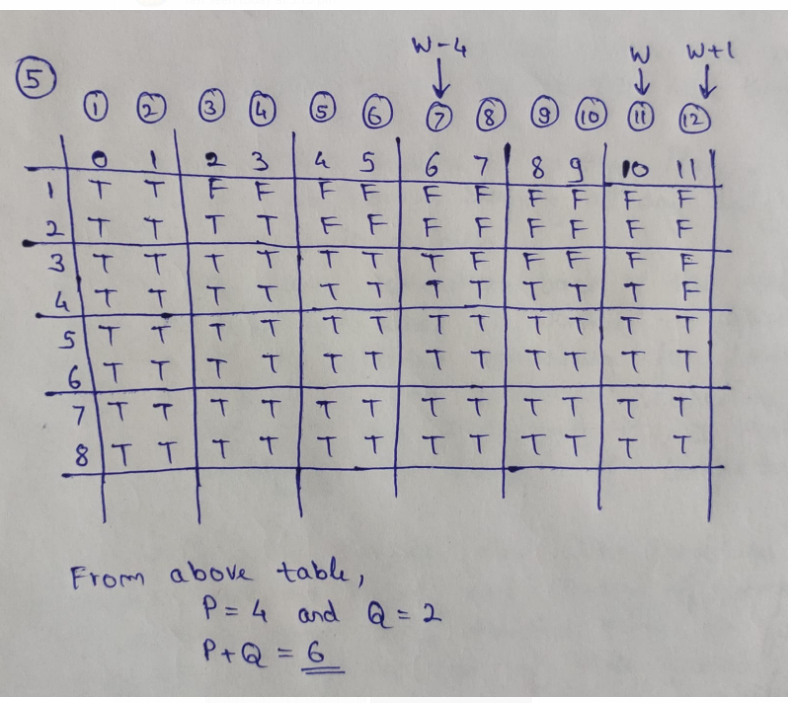 W-4 W W+1
5
1 2 3 4 5 6 7 8 9 10 11 12
0 1 2 3 4 5 6 7 8 9 10 11
1 T T F F F F F F F F F F
2 T T T T F F F F F F F F
3 T T T T T T T F F F F F
4 T T T T T T T T T T T F
5 T T T T T T T T T T T T
6 T T T T T T T T T T T T
7 T T T T T T T T T T T T
8 T T T T T T T T T T T T
From above table,
P = 4 and Q = 2
P+Q = 6